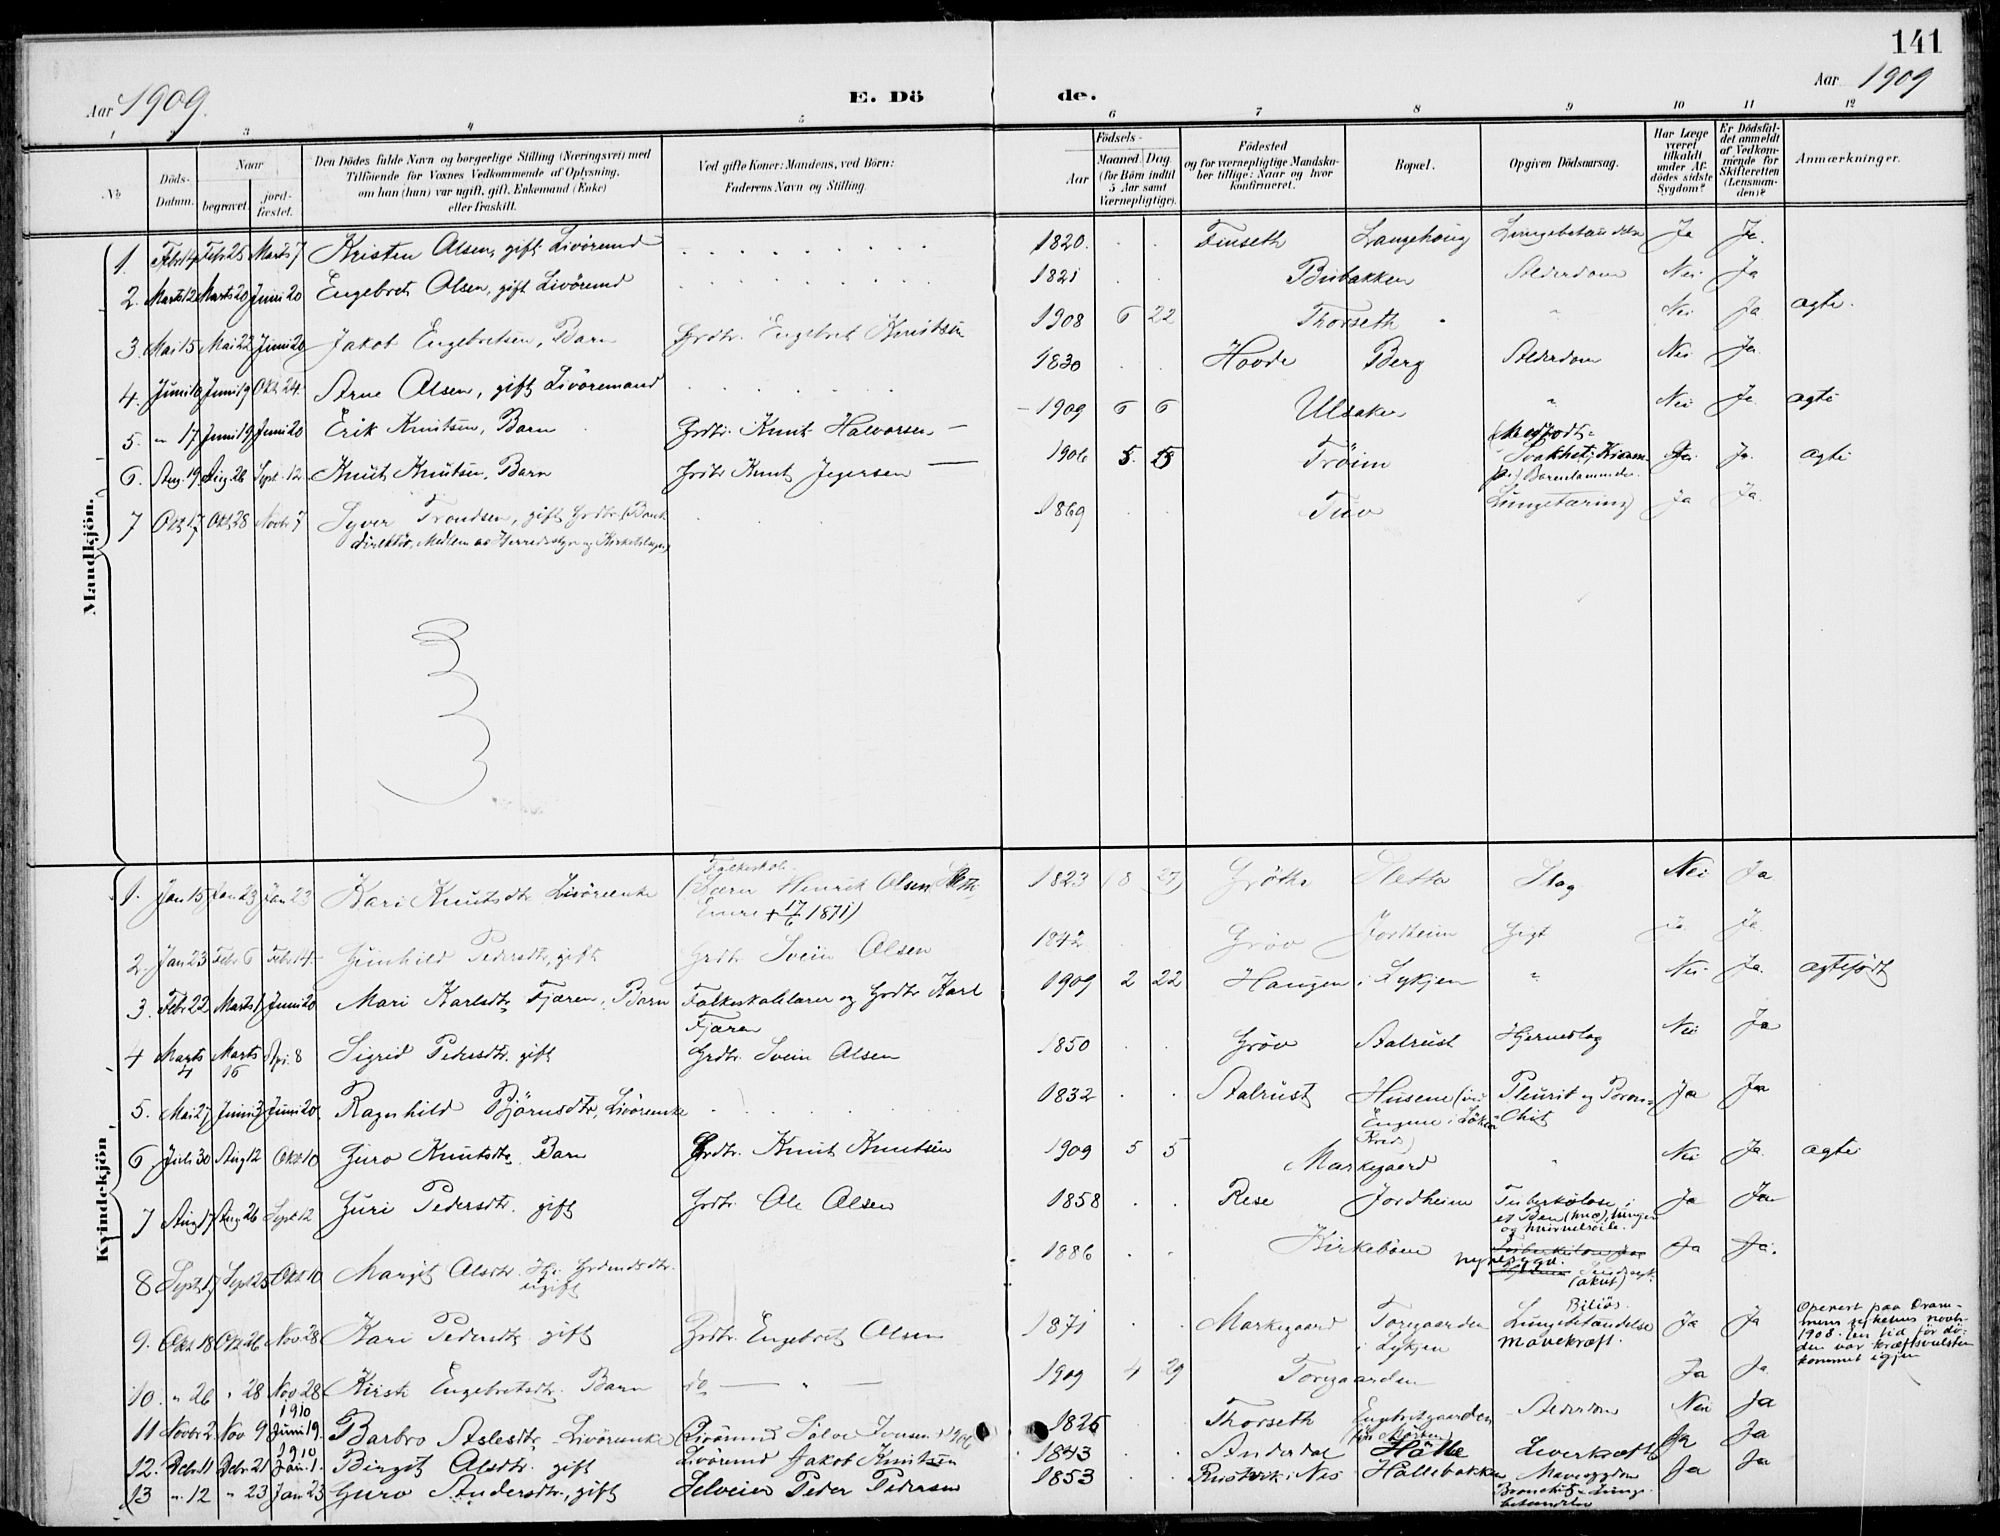 141
Aar 1909.
E. Dö
de.
Aar 1909
1 2 3 4 5 6 7 8 9 10 11 12
No
Döds-Datum.
Naar
begravet.
jord-fæstet.
Den Dödes fulde Navn og borgerlige Stilling (Næringsvei) med
Tilföiende for Voxnes Vedkommende af Oplysning,
om han (hun) var ugift, gift, Enkemand (Enke)
eller fraskilt.
Ved gifte Koner: Mandens, ved Börn:
Faderens Navn og Stilling.
Födsels-
Aar
Maaned. Dag.
(for Börn indtil
5 Aar samt
Værnepligtige).
Födested
og for værnepligtige Mandska-
ber tillige: Naar og hvor
konfirmeret.
Bopæl.
Opgiven Dödsaarsag.
Har Læge
været
tilkaldt
under Af-
dödes sidste
Sygdom?
Er Dödsfal-
det anmeldt
af Vedkom-
mende for
Skifteretten
(Lensman-
den)?
Anmærkninger.
Mandkjön.
1. Febr 14 Febr 25 Marts 7 Kristen Olsen, gift Livöremd 1820. Finseth Langehaug Lungebetændelse Ja Ja.
2. Marts 12 Marts 20 Juni 20 Engebret Olsen, gift Livöremd 1821 Bisbakken Alderdom Nei Ja
3. Mai 15 Mai 22 Juni 20 Jakob Engebretsen, Barn Grdbr. Engebret Knutsen 1908 6 22 Thorseth " Nei Ja ægte.
4. Juni 10 Juni 19 Okt. 24. Arne Olsen, gift Livöremand 1830 Hovde Berg Alderdom Nei Ja
5. " 17 Juni 19 Juni 20 Erik Knutsen, Barn Grdbr. Knut Halvorsen 1909 6 6 Ulsaker " Nei Ja ægte
6. Aug. 19 Aug 28 Sept. 12 Knut Knutsen, Barn Grdbr Knut Jegersen 1906 5. Tröim (Medfödt Svakhet; Kram-
pe.) Barnelammelse Ja. ægte
7 Okt 17 Okt 28 Novbr 7 Syver Trondsen, gift Grdbr. (Bank- 1869 Tuv Lungetæring Ja Ja.
direktör, Medlem av Herredsstyre og
Kvindekjön
1. Jan 15 Jan 23 Jan 23 Kari Knutsdtr Livöreenke Folkeskole-
(Lærer Henrik Olsen 1823 (8 27) Gröthe Sletto Slag Nei Ja
+ 17/6 1871)
2. Jan 23 Febr 6 Febr 14 Gunhild Pedersdtr, gift Grdbr Svein Olsen 1842 Gröv Jordheim Gigt Ja Ja
3. Febr 22 Marts Juni 20 Mari Karlsdtr Fjæren, Barn Folkeskolelærer og Grdbr Karl 1909 2 22 Haugen i Lykjen " Nei Ja. ægtefödt
Fjæren
4 Marts 4 Marts 16 Apr. 8 Sigrid Pedersdtr. gift Grdbr. Svein Olsen 1850 Gröv Aalrust Hjerneslag Nei Ja
5. Mai 27 Juni 3 Juni 20 Ragnhild Björnsdtr, Livöreenke 1832 Aalrust Husene Pleurit og Bron- Ja Ja
chit
6 Juli 30 Aug 12 Okt 10 Guro Knutsdtr Barn Grdbr. Knut Knutsen 1909 5 5 Markegaard " Nei Ja ægte
7 Aug 17 Aug 26 Sept 12 Guri Pedersdtr. gift Grdbr. Ole Olsen 1858 Rese Jordheim Tuberkulose i Ja Ja
et Ben (knæ), lunger
og
8 Sept 17 Sept 25 Okt 10 Margit Olsdtr. ugift 1886 Kirkeböen nyresygd. (akut) Ja Ja.
9. Okt 18 Okt 26 Nov 28 Kari Pedersdtr gift Grdbr. Engebret Olsen 1871 Markegaard Toregaarden
i Lykjen Biliös. Lungebetændelse
Mavekræft. Ja Ja Operert paa Dram-
mens sykehus novbr
1908. En tid för dö-
den var kræftsvulsten
kommet igjen
10. " 26 " 28 Nov 28 Kirsti Engebretsdtr. Barn do — " — 1909 4 29 Toregaarden Ja Ja
11 Novbr 2 Nov 9 1910 Juni 19. Barbro Aslesdtr. Livöreenke 1826 Thorseth Engebretgaarden Alderdom Nei Ja
12. Debr. 11 Debr. 21 1910 Jan. 1. Birgit Olsdtr. gift Livöremd Jakob Knutsen 1843 Anderdal Hölle Leverkræft Ja Ja
13 " 12 " 23 Jan 23 Guro Andersdtr, gift Selveier Peder Pedersen 1853 Rustvik i Nes Höllebakken Mavesygdom Ja Ja
Bronchit - Lunge-
betændelse